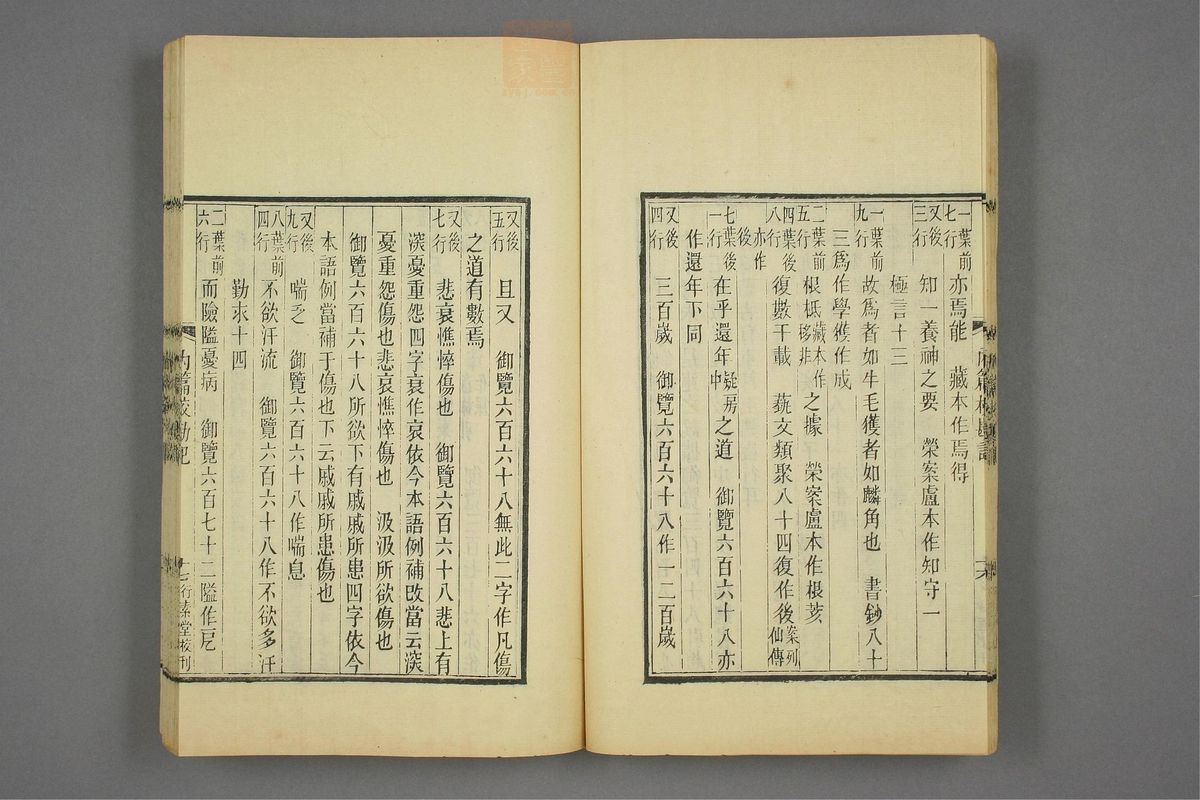 一葉前七行 亦焉能 藏本作焉得
又後三行 知一養神之要 榮案盧本作知守一
極言十三
一葉前九行 故爲者如牛毛獲者如麟角也 書鈔八十
三爲作學獲作成
二葉前五行 根柢藏本作移非之據 榮案盧本作根荄
四葉後八行 復數千載 蓺文類聚八十四復作後案列仙傳
亦作後
七葉後一行 在乎還年中疑房之道 御覽六百六十八亦
作還年下同
又後四行 三百歲 御覽六百六十八作一二百歲
又後五行 且又 御覽六百六十八無此二字作凡傷
之道有數焉
又後七行 悲哀憔悴傷也 御覽六百六十八悲上有
深憂重怨四字哀作哀依今本語例補改當云深
憂重怨傷也悲哀憔悴傷也 汲汲所欲傷也
御覽六百六十八所欲下有戚戚所患四字依今
本語例當補于傷也下云戚戚所患傷也
又後九行 喘乏 御覽六百六十八作喘息
八葉前四行 不欲汗流 御覽六百六十八作不欲多汗
勤求十四
二葉前六行 而險隘憂病 御覽六百七十二隘作戹
內篇校勘記
行素堂校刊